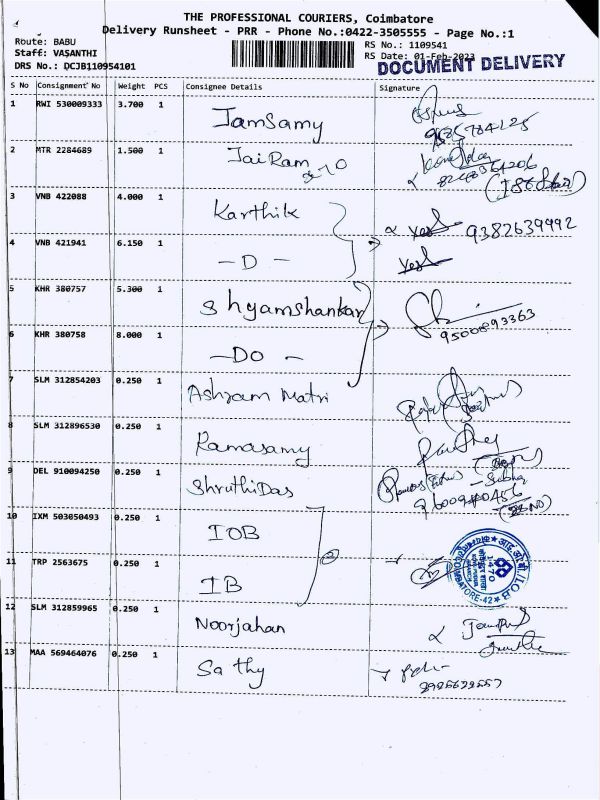 THE PROFESSIONAL COURIERS, Coimbatore
Delivery Runsheet - PRR - Phone No.:0422-3505555 - Page No.:1
Route: BABU
RS No.: 1109541
Staff: VASANTHI
RS Date: 01-Feb-2023
DRS No.: DCJB1109954101
DOCUMENT DELIVERY
S No Consignment No Weight PCS Consignee Details Signature
1 RWI 530009333 3.700 1 Jamsamy
2 MTR 2284689 1.500 1 Jai Ram
3 VNB 422088 4.000 1 Karthik 9382639992
4 VNB 421941 6.150 1 - D -
5 KHR 380757 5.300 1 Shyamshankar 9500893363
6 KHR 380758 8.000 1 - DO -
7 SLM 312854203 0.250 1 Ashram Matri
8 SLM 312896530 0.250 1 Ramasamy
9 DEL 910094250 0.250 1 ShruthiDas
10 IXM 503050493 0.250 1 IOB
11 TRP 2563675 0.250 1 IB
12 SLM 312859965 0.250 1 Noorjahan
13 MAA 569464076 0.250 1 Sathy